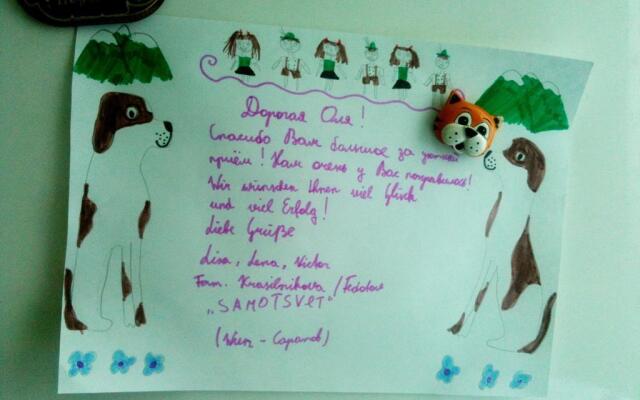 Дорогая Оля!
Спасибо Вам большое за уютный
приём! Нам очень у Вас понравилось!
Wir wünschen Ihnen viel Glück
und viel Erfolg!
Liebe Grüße
Lisa, Lena, Victor
Fam. Krasilnikova / Fedotov
„SAMOTSVET"
(Wien - Саратов)